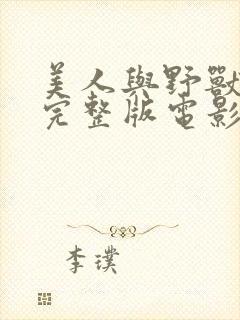 美人與野獸
完整版電影
李璞